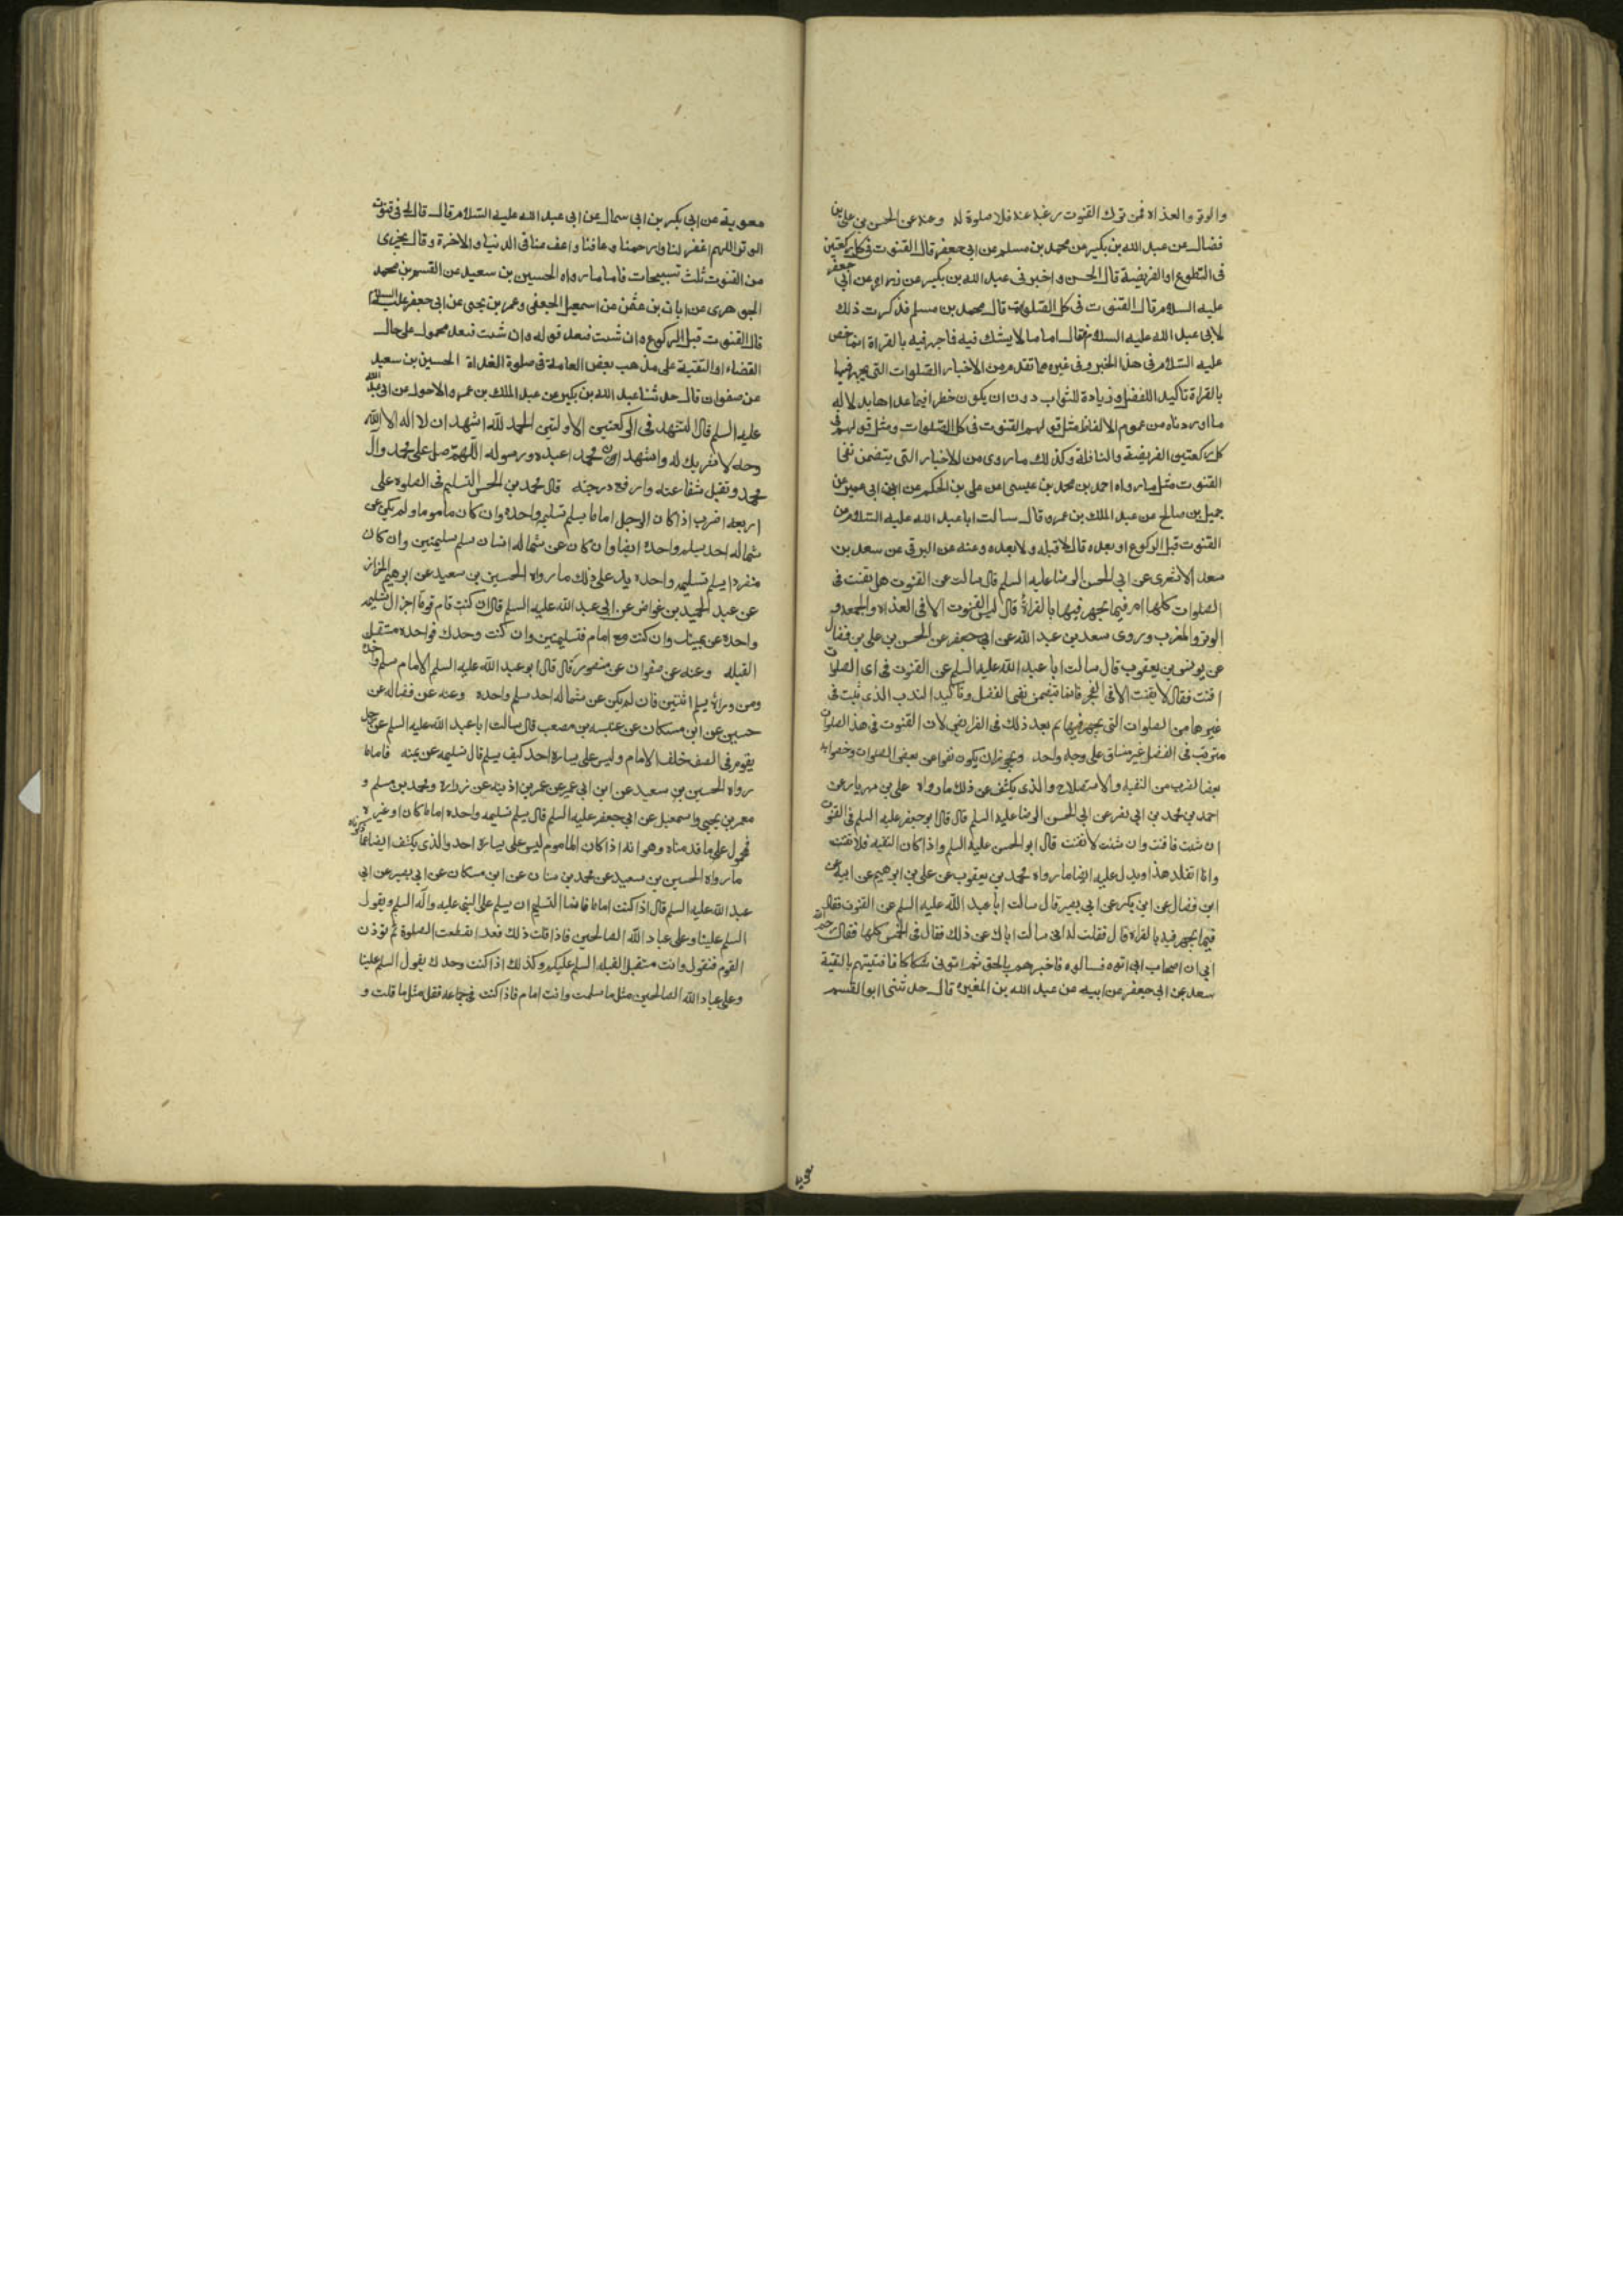 والوتر والغداة فمن ترك القنوت رغبة عنه فلا صلوة له وعنه عن الحسن بن علي بن
فضال عن عبد الله بن بكير عن محمد بن مسلم عن ابي جعفر قال القنوت في كل ركعتين
في التطوع او الفريضة قال الحسن واخبرني عبد الله بن بكير عن زرارة عن ابي جعفر
عليه السلام قال القنوت في كل الصلوات قال محمد بن مسلم فذكرت ذلك
لابي عبد الله عليه السلام فقال اما ما لا يشك فيه فما جهر فيه بالقراة انما خص
عليه السلام في هذا الخبر وفي غيره مما تقدم من الاخبار الصلوات التي يجهر فيها
بالقراة تاكيد اللفضل وزيادة للثواب دون ان يكون خطرا فيما عداها بدلالة
ما اوردناه من عموم الالفاظ مثل قولهم القنوت في كل الصلوات ومثل قولهم في
كل ركعتين الفريضة والنافلة وكذلك ما روى من الاخبار التي يتضمن نفي
القنوت مثل ما رواه احمد بن محمد بن عيسى عن علي بن الحكم عن ابن ابي عمير عن
جميل بن صالح عن عبد الملك بن عمرو قال سالت ابا عبد الله عليه السلام عن
القنوت قبل الركوع او بعده قال لا قبله ولا بعده وعنه عن البرقي عن سعد بن
سعد الاشعري عن ابي الحسن الرضا عليه السلم قال سالت عن القنوت هل يقنت في
الصلوات كلها ام فيما يجهر فيها بالقراة قال ليس القنوت الا في الغداة والجمعه و
الوتر والمغرب وروى سعد بن عبد الله عن ابي جعفر عن الحسن بن علي بن فضال
عن يونس بن يعقوب قال سالت ابا عبد الله عليه السلم عن القنوت في اى الصلوات
اقنت فقال لا يقنت الا في الفجر فانما يتضمن نفي الفضل وتاكيد الندب الذي ثبت في
غيرها من الصلوات التي يجهر فيها ثم بعد ذلك في الفرايض لان القنوت في هذ الصلوات
مترتب في الفضل غير متساق على وجه واحد ويجوز ان يكون نفوا عن بعض الصلوات
بعض الضرب من التقيه والاستصلاح والذي يكشف عن ذلك ما رواه علي بن مهزيار عن
احمد بن محمد بن ابي نصر عن ابي الحسن الرضا عليه السلم قال قال ابو جعفر عليه السلم في القنوت
ان شئت فاقنت وان شئت لا تقنت قال ابو الحسن عليه السلم واذا كان التقيه فلا تقنت
وانا اتقلد هذا ويدل عليه ايضا ما رواه محمد بن يعقوب عن علي بن ابراهيم عن ابيه عن
ابن فضال عن ابن بكير عن ابي بصير قال سالت ابا عبد الله عليه السلم عن القنوت فقال
فيما يجهر فيه بالقراة قال فقلت له اني سالت اباك عن ذلك فقال في الخمس كلها فقال رحم الله
ابي ان اصحاب ابي اتوه فسالوه فاخبرهم بالحق ثم اتوني شكاكا فافتيتهم بالتقية
سعد عن ابي جعفر عن ابيه عن عبد الله بن المغيرة قال حدثني ابو القسم
معوية
معوية عن ابي بكير بن ابي سمال عن ابي عبد الله عليه السلام قال قال لي في قنوت
الوتر اللهم اغفر لنا وارحمنا وعافنا واعف عنا في الدنيا والاخرة وقال يجزى
من القنوت ثلث تسبيحات فاما ما رواه الحسين بن سعيد عن القسم بن محمد
الجوهرى عن ابان بن عثمن عن اسمعيل الجعفي وعمر بن يحيى عن ابي جعفر عليه السلام
قال القنوت قبل الركوع وان شئت فبعد قوله وان شئت فبعد محمول على حال
القضاء او التقية على مذهب بعض العامة في صلوة الغداة الحسين بن سعيد
عن صفوان قال حدثنا عبد الله بن بكير عن عبد الملك بن عمرو الاحول عن ابي عبد الله
عليه السلم قال التشهد في الركعتين الاولتين الحمد لله اشهد ان لا اله الا الله
وحده لا شريك له واشهد ان محمدا عبده ورسوله اللهم صل على محمد وال
محمد وتقبل شفاعته وارفع درجته قال محمد بن الحسن التسليم في الصلوة على
اربعة اضرب اذا كان الرجل اماما يسلم تسليم واحده وان كان ماموما ولم يكن عن
شماله احد يسلم واحدة ايضا وان كان عن شماله انسان سلم تسليمتين وان كان
منفردا يسلم تسليمه واحدة يدل على ذلك ما رواه الحسين بن سعيد عن ابرهيم الخزاز
عن عبد الحميد بن غواض عن ابي عبد الله عليه السلم قال ان كنت تام قوما اجزاك تسليمه
واحدة عن يمينك وان كنت مع امام فتسليمتين وان كنت وحدك فواحدة مستقبل
القبله وعنه عن صفوان عن منصور قال قال ابو عبد الله عليه السلم الامام سلم واحدة
ومن وراءه يسلم اثنتين فان لم يكن عن شماله احد سلم واحدة وعنه عن فضاله عن
حسين عن ابن مسكان عن عنبسه بن مصعب قال سالت ابا عبد الله عليه السلم عن رجل
يقوم في الصف خلف الامام وليس على يساره احد كيف يسلم قال تسليمه عن يمينه فاما ما
رواه الحسين بن سعيد عن ابن ابي عمير عن عمر بن اذينه عن زرارة ومحمد بن مسلم و
معمر بن يحيى واسمعيل عن ابي جعفر عليه السلم قال يسلم تسليمه واحدة اماما كان او غيره
فمحمول على ما قدمناه وهو انه اذا كان الماموم ليس على يساره احد والذي يكشف ايضا عما ذكرناه
ما رواه الحسين بن سعيد عن محمد بن سنان عن ابن مسكان عن ابي بصير عن ابي
عبد الله عليه السلم قال اذا كنت اماما فانما التسليم ان يسلم على النبي عليه واله السلم ويقول
السلم علينا وعلى عباد الله الصالحين فاذا قلت ذلك فعد انقطعت الصلوة ثم توذن
القوم فتقول وانت مستقبل القبله السلم عليكم وكذلك اذا كنت وحدك يقول السلم علينا
وعلى عباد الله الصالحين مثل ما سلمت وانت امام فاذا كنت في جماعه فقل مثل ما قلت و